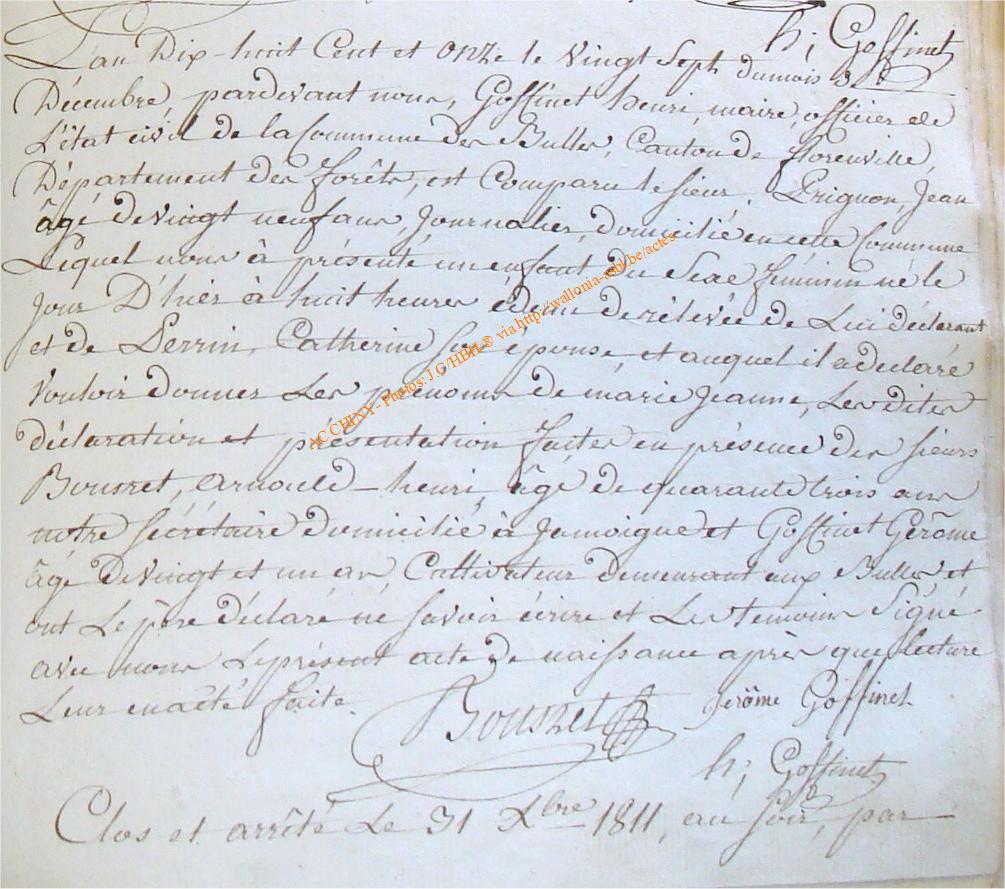 h; Goffinet
L'an Dix-huit Cent et onze le Vingt Sept du mois de
Décembre, pardevant nous, Goffinet henri, maire, officier de
L'état civil de la Commune des Bulles, Canton de florenville,
Département des forêts, est Comparu le sieur, Prignon, Jean
âgé de vingt neuf ans, Journalier, domicilié en cette Commune
Lequel nous à présenté un enfant du Sexe féminin né le
jour D'hier à huit heures édemi de rélévée de Lui déclarant
et de Perrin, Catherine son épouse et auquel il a déclaré
Vouloir donner Les prénoms de marie Jeanne, Les dites
déclaration et présentation faites en présence des sieurs
Bousret, arnould-henri, âgé de quarante trois ans
notre sécrétaire domicilié à Jamoigne et Goffinet Gérôme
âgé de vingt et un an, Cultivateur demeurant aux Bulles et
ont Le père déclaré né savoir écrire et Les temoins Signé
avec nous Le présent acte de naissance après que lecture
Leur en a été faite.
Bousret Jérôme Goffinet
h; Goffinet
Clos et arrêté Le 31 Xbre 1811, au soir, par
AC CHINY - Photos: J.G/HBH ® via http://wallonia-asbl.be/actes